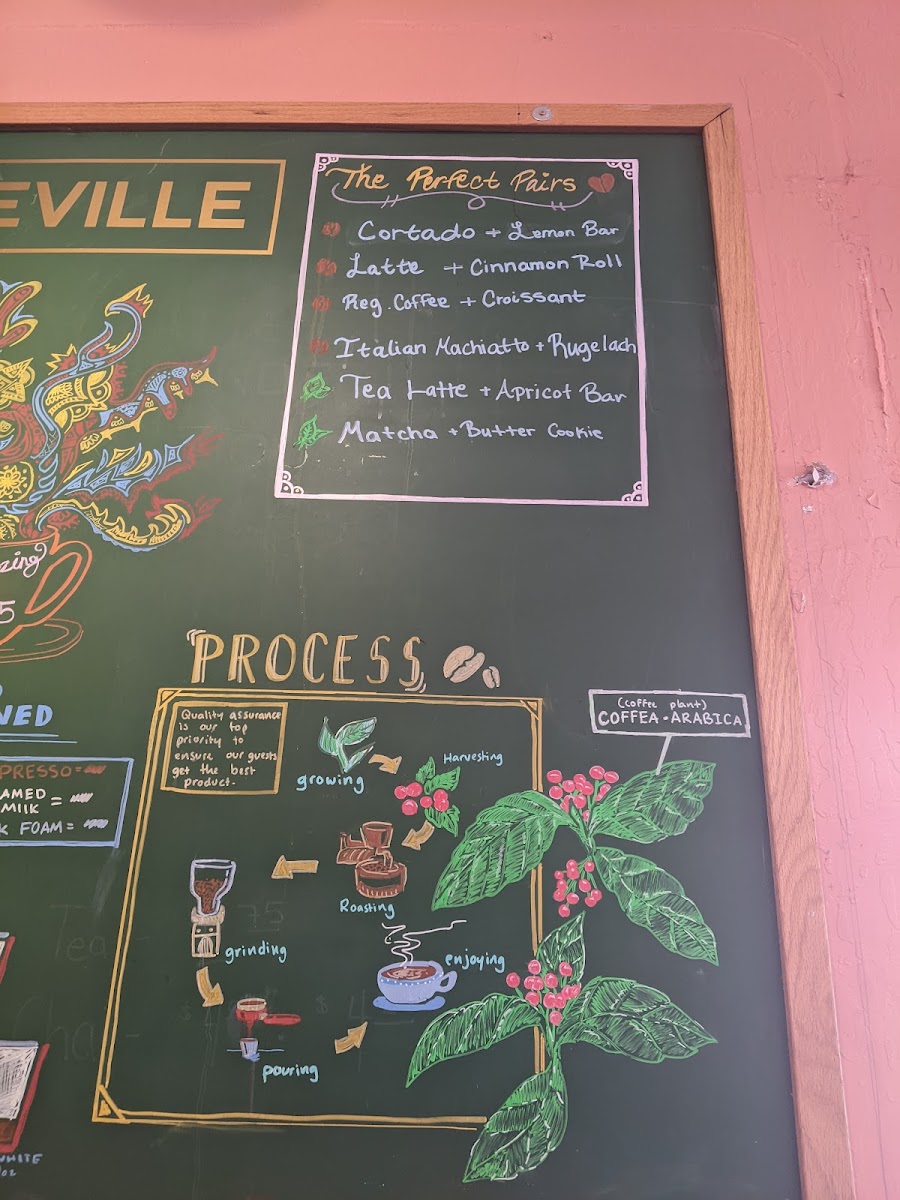 EVILLE
The Perfect Pairs
Cortado + Lemon Bar
Latte + Cinnamon Roll
Reg. Coffee + Croissant
Italian Machiatto + Rugelach
Tea Latte + Apricot Bar
Matcha + Butter Cookie
zing
5
NED
PRESSO=
AMED
MILK =
K FOAM=
PROCESS
Quality assurance
is our top
priority to
ensure our guests
get the best
product.
growing
Harvesting
Roasting
grinding
pouring
enjoying
(coffee plant)
COFFEA-ARABICA
WHITE
oz